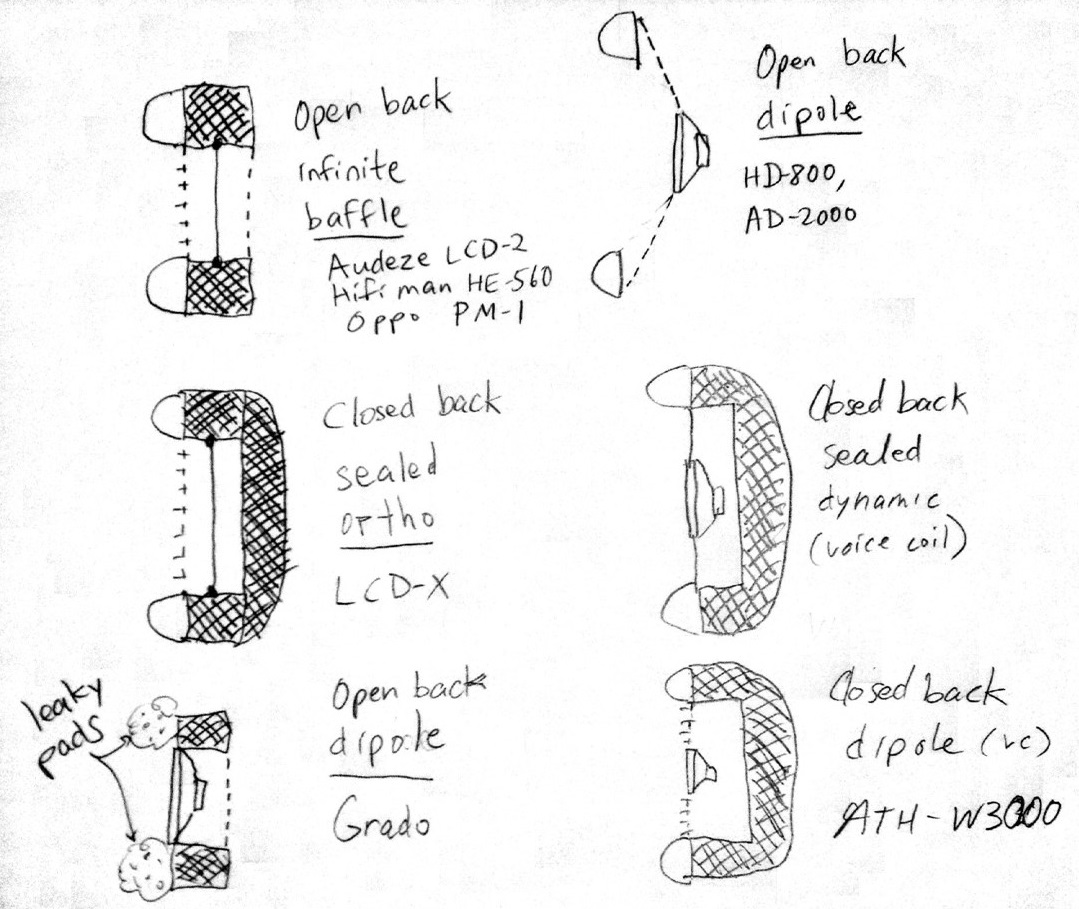 Open back
infinite
baffle
Audeze LCD-2
Hifi man HE-560
Oppo PM-1
Open back
dipole
HD-800,
AD-2000
Closed back
sealed
ortho
LCD-X
Closed back
sealed
dynamic
(voice coil)
leaky
pads
Open back
dipole
Grado
Closed back
dipole (vc)
ATH-W3000